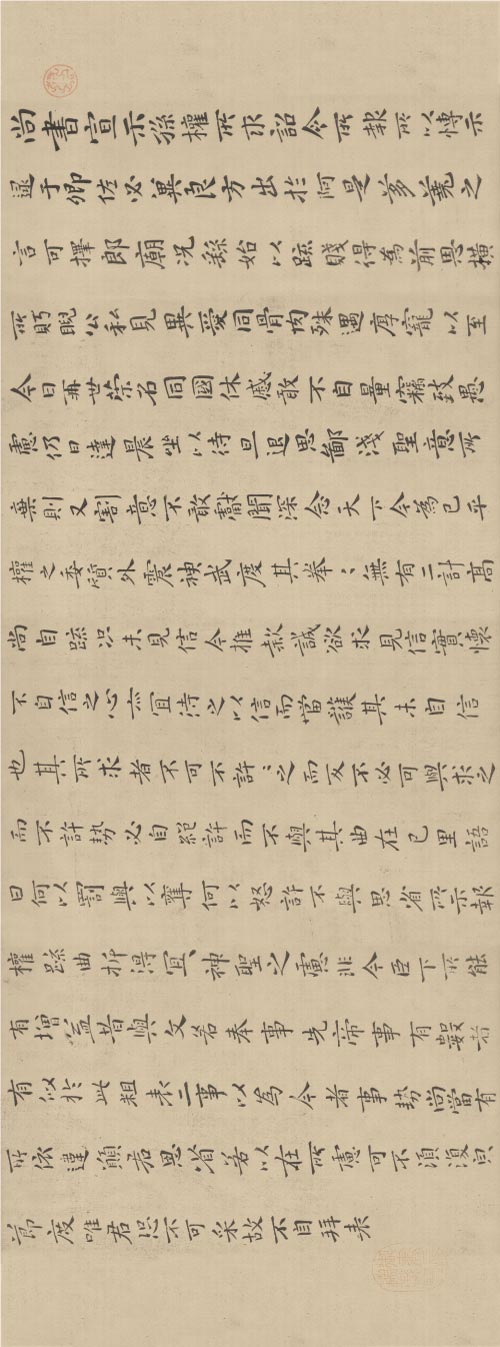 尚書宣示孫權所求詔令所報所以博示
逮于卿佐必冀良方出於阿是芻蕘之
言可擇郎廟況繇始以疏賤得為前恩橫
所眄睨公私見異愛同骨肉殊遇厚寵以至
今日再世榮名同國休慼敢不自量竊致愚
慮仍日達晨坐以待旦退思鄙淺聖意所
棄則又割意不敢獻聞深念天下今為已平
權之委質外震神武度其拳〻無有二計高
尚自疏況未見信今推款誠欲求見信實懷
不自信之心亦宜待之以信而當護其未自信
也其所求者不可不許〻之而反不必可與求之
而不許勢必自絕許而不與其曲在己里語
曰何以罰與以奪何以怒許不與思省所示報
權疏曲折得宜〻神聖之慮非今臣下所能
有增益昔與文若奉事先帝事有數者
有似於此粗表二事以為今者事勢尚當有
所依違願君思省若以在所慮可不須復
節度唯君恐不可采故不自拜表